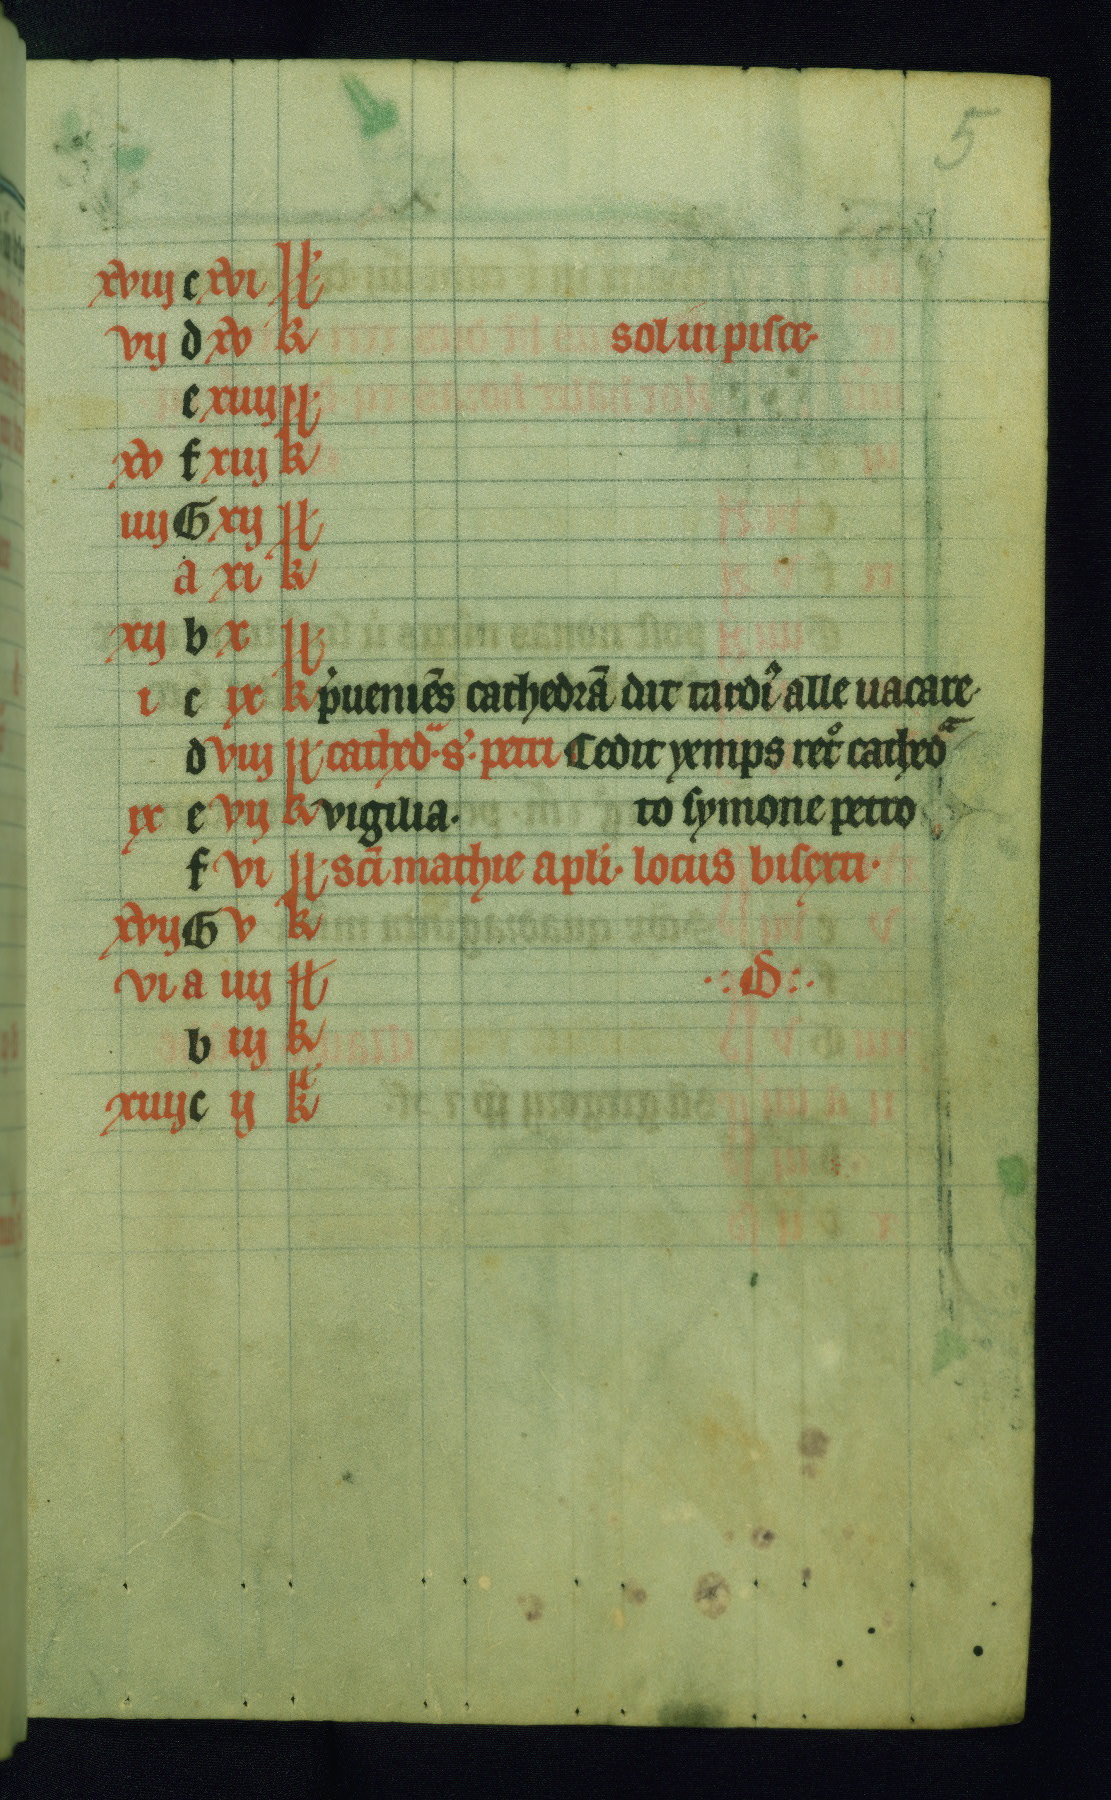 5
xviij c xvi kl
vij d xv k sol in pisce·
e xiiij kl
xv f xiij k
iiij G xij kl
a xi k
xij b x kl
i c ix k p̍ueniēs cathedrā dic tardı̉ alle uacare·
d viij kl cathedᷓ· s'· petri Cedit yemps ret͛ cathedᷓ
ix e vij k vigilia· to symone petro
f vi kl sc̄i mathie apl̄i· locus bisexti·
xvij G v k
vi a iiij kl G
b iij k
xiiij c ij k